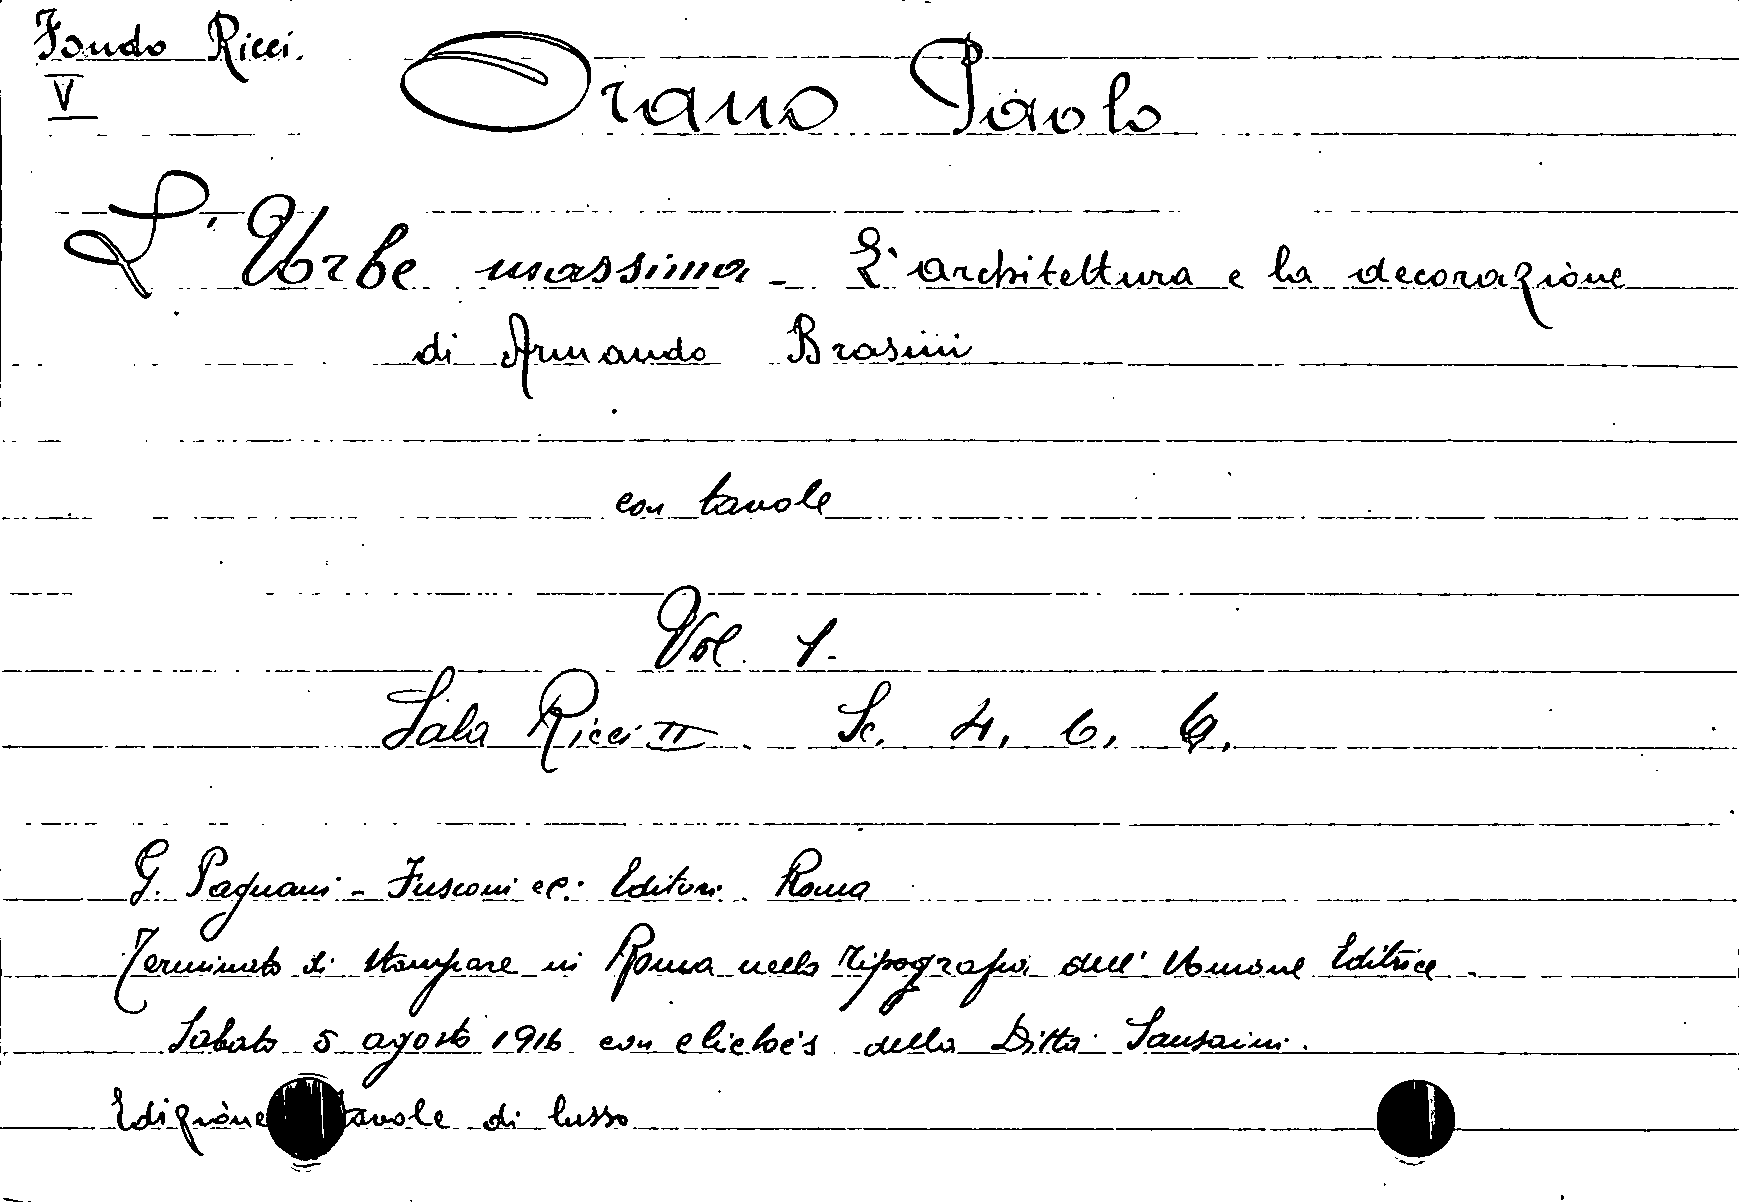 Fondo Ricci.
V
Orano Paolo
L'Urbe massima - L'architettura e la decorazione
di Armando Brasini
con tavole
Vol. 1.
Sala Ricci II. Sc. 4, 6, 6,
G. Pagnani - Fusconi e C. Editori. Roma
Terminato di stampare in Roma nella Tipografia dell'Unione Editrice.
Sabato 5 agosto 1916 con clichés della Ditta Sansaini.
Edizione tavole di lusso